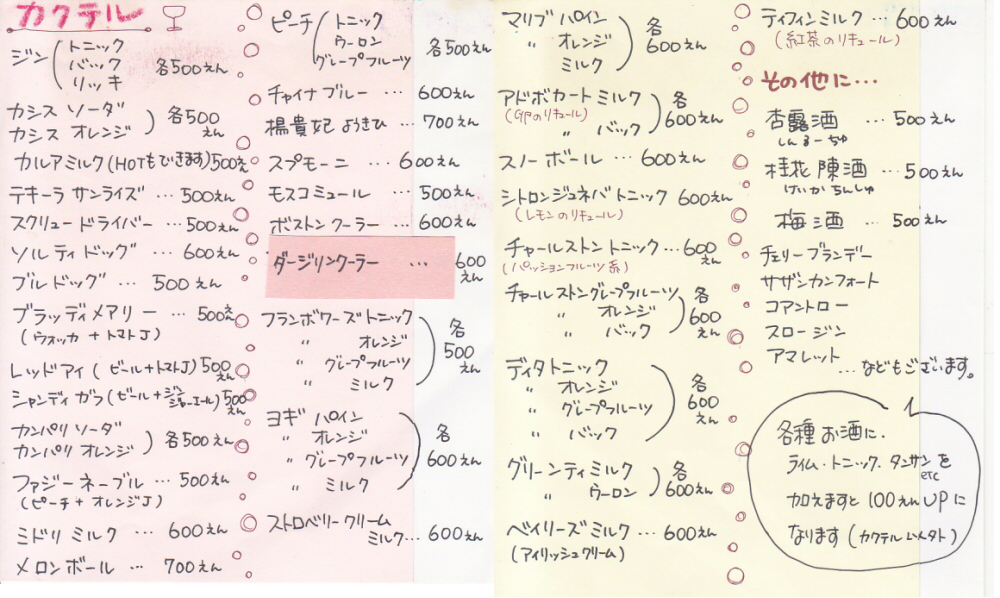 カクテル
ジン トニック
バック
リッキ
各500えん
カシス ソーダ
カシス オレンジ
各500えん
カルアミルク(HOTもできます) 500え
テキーラ サンライズ … 500えん
スクリュードライバー … 500えん
ソルティ ドッグ … 600えん
ブル ドッグ … 500えん
ブラッディメアリー … 500え
(ウォッカ + トマトJ)
レッドアイ (ビール+トマトJ) 500えん
シャンディガラ (ビール+ジンジャーエール) 500えん
カンパリ ソーダ
カンパリ オレンジ
各500えん
ファジーネーブル … 500えん
(ピーチ + オレンジJ)
ミドリ ミルク … 600えん
メロンボール … 700えん
ピーチ トニック
ウーロン
グレープフルーツ
各500えん
チャイナ ブルー … 600えん
楊貴妃 ようきひ … 700えん
スプモーニ … 600えん
モスコミュール … 500えん
ボストンクーラー … 600えん
ダージリンクーラー … 600えん
フランボワーズトニック
〃 オレンジ
〃 グレープフルーツ
〃 ミルク
各500えん
ヨギ パイン
〃 オレンジ
〃 グレープフルーツ
〃 ミルク
各600えん
ストロベリークリーム
ミルク… 600えん
マリブ パイン
〃 オレンジ
ミルク
各600えん
アドボカート ミルク
(卵のリキュール)
〃 バック
各600えん
スノーボール … 600えん
シトロンジュネバトニック 600えん
(レモンのリキュール)
チャールストントニック … 600えん
(パッションフルーツ系)
チャールストングレープフルーツ
〃 オレンジ
〃 バック
各600えん
ディタトニック
〃 オレンジ
〃 グレープフルーツ
〃 バック
各600えん
グリーンティミルク
〃 ウーロン
各600えん
ベイリーズミルク … 600えん
(アイリッシュクリーム)
ティフィンミルク … 600えん
(紅茶のリキュール)
その他に…
杏露酒 … 500えん
しんるーちゅ
桂花陳酒 … 500えん
けいかちんしゅ
梅酒 … 500えん
チェリーブランデー
サザンカンフォート
コアントロー
スロージン
アマレット
… などもございます。
各種お酒に、
ライム・トニック・タンサンを
etc
加えますと 100えんUPに
なります (カクテル以外)